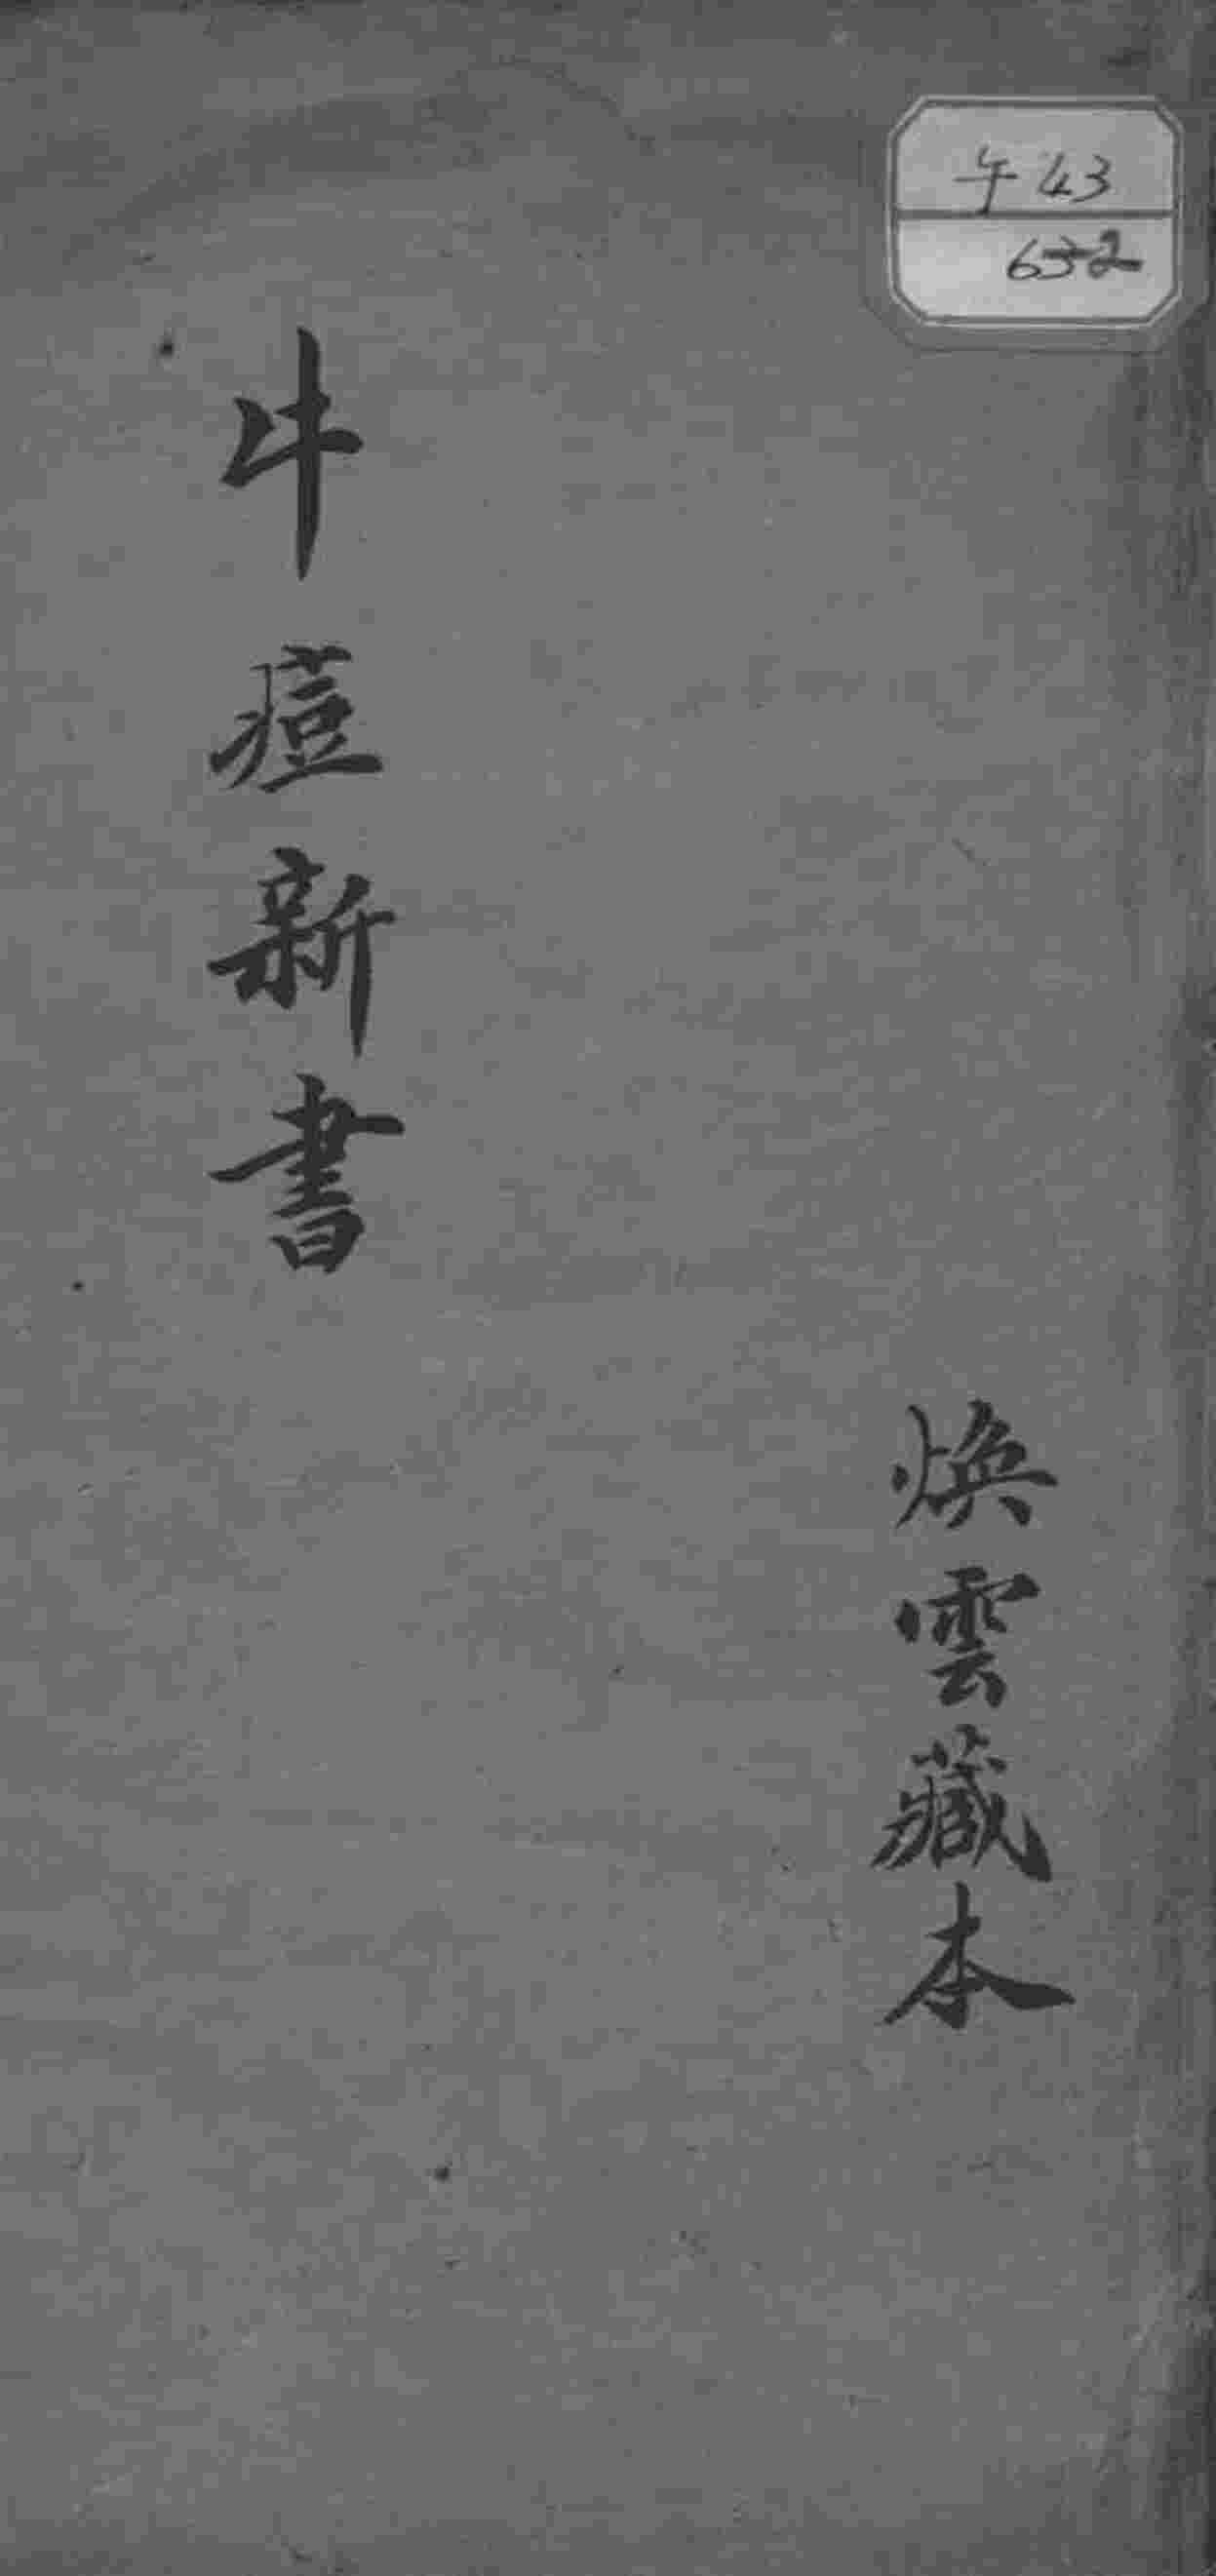 午43
632
煥雲藏本
牛痘新書